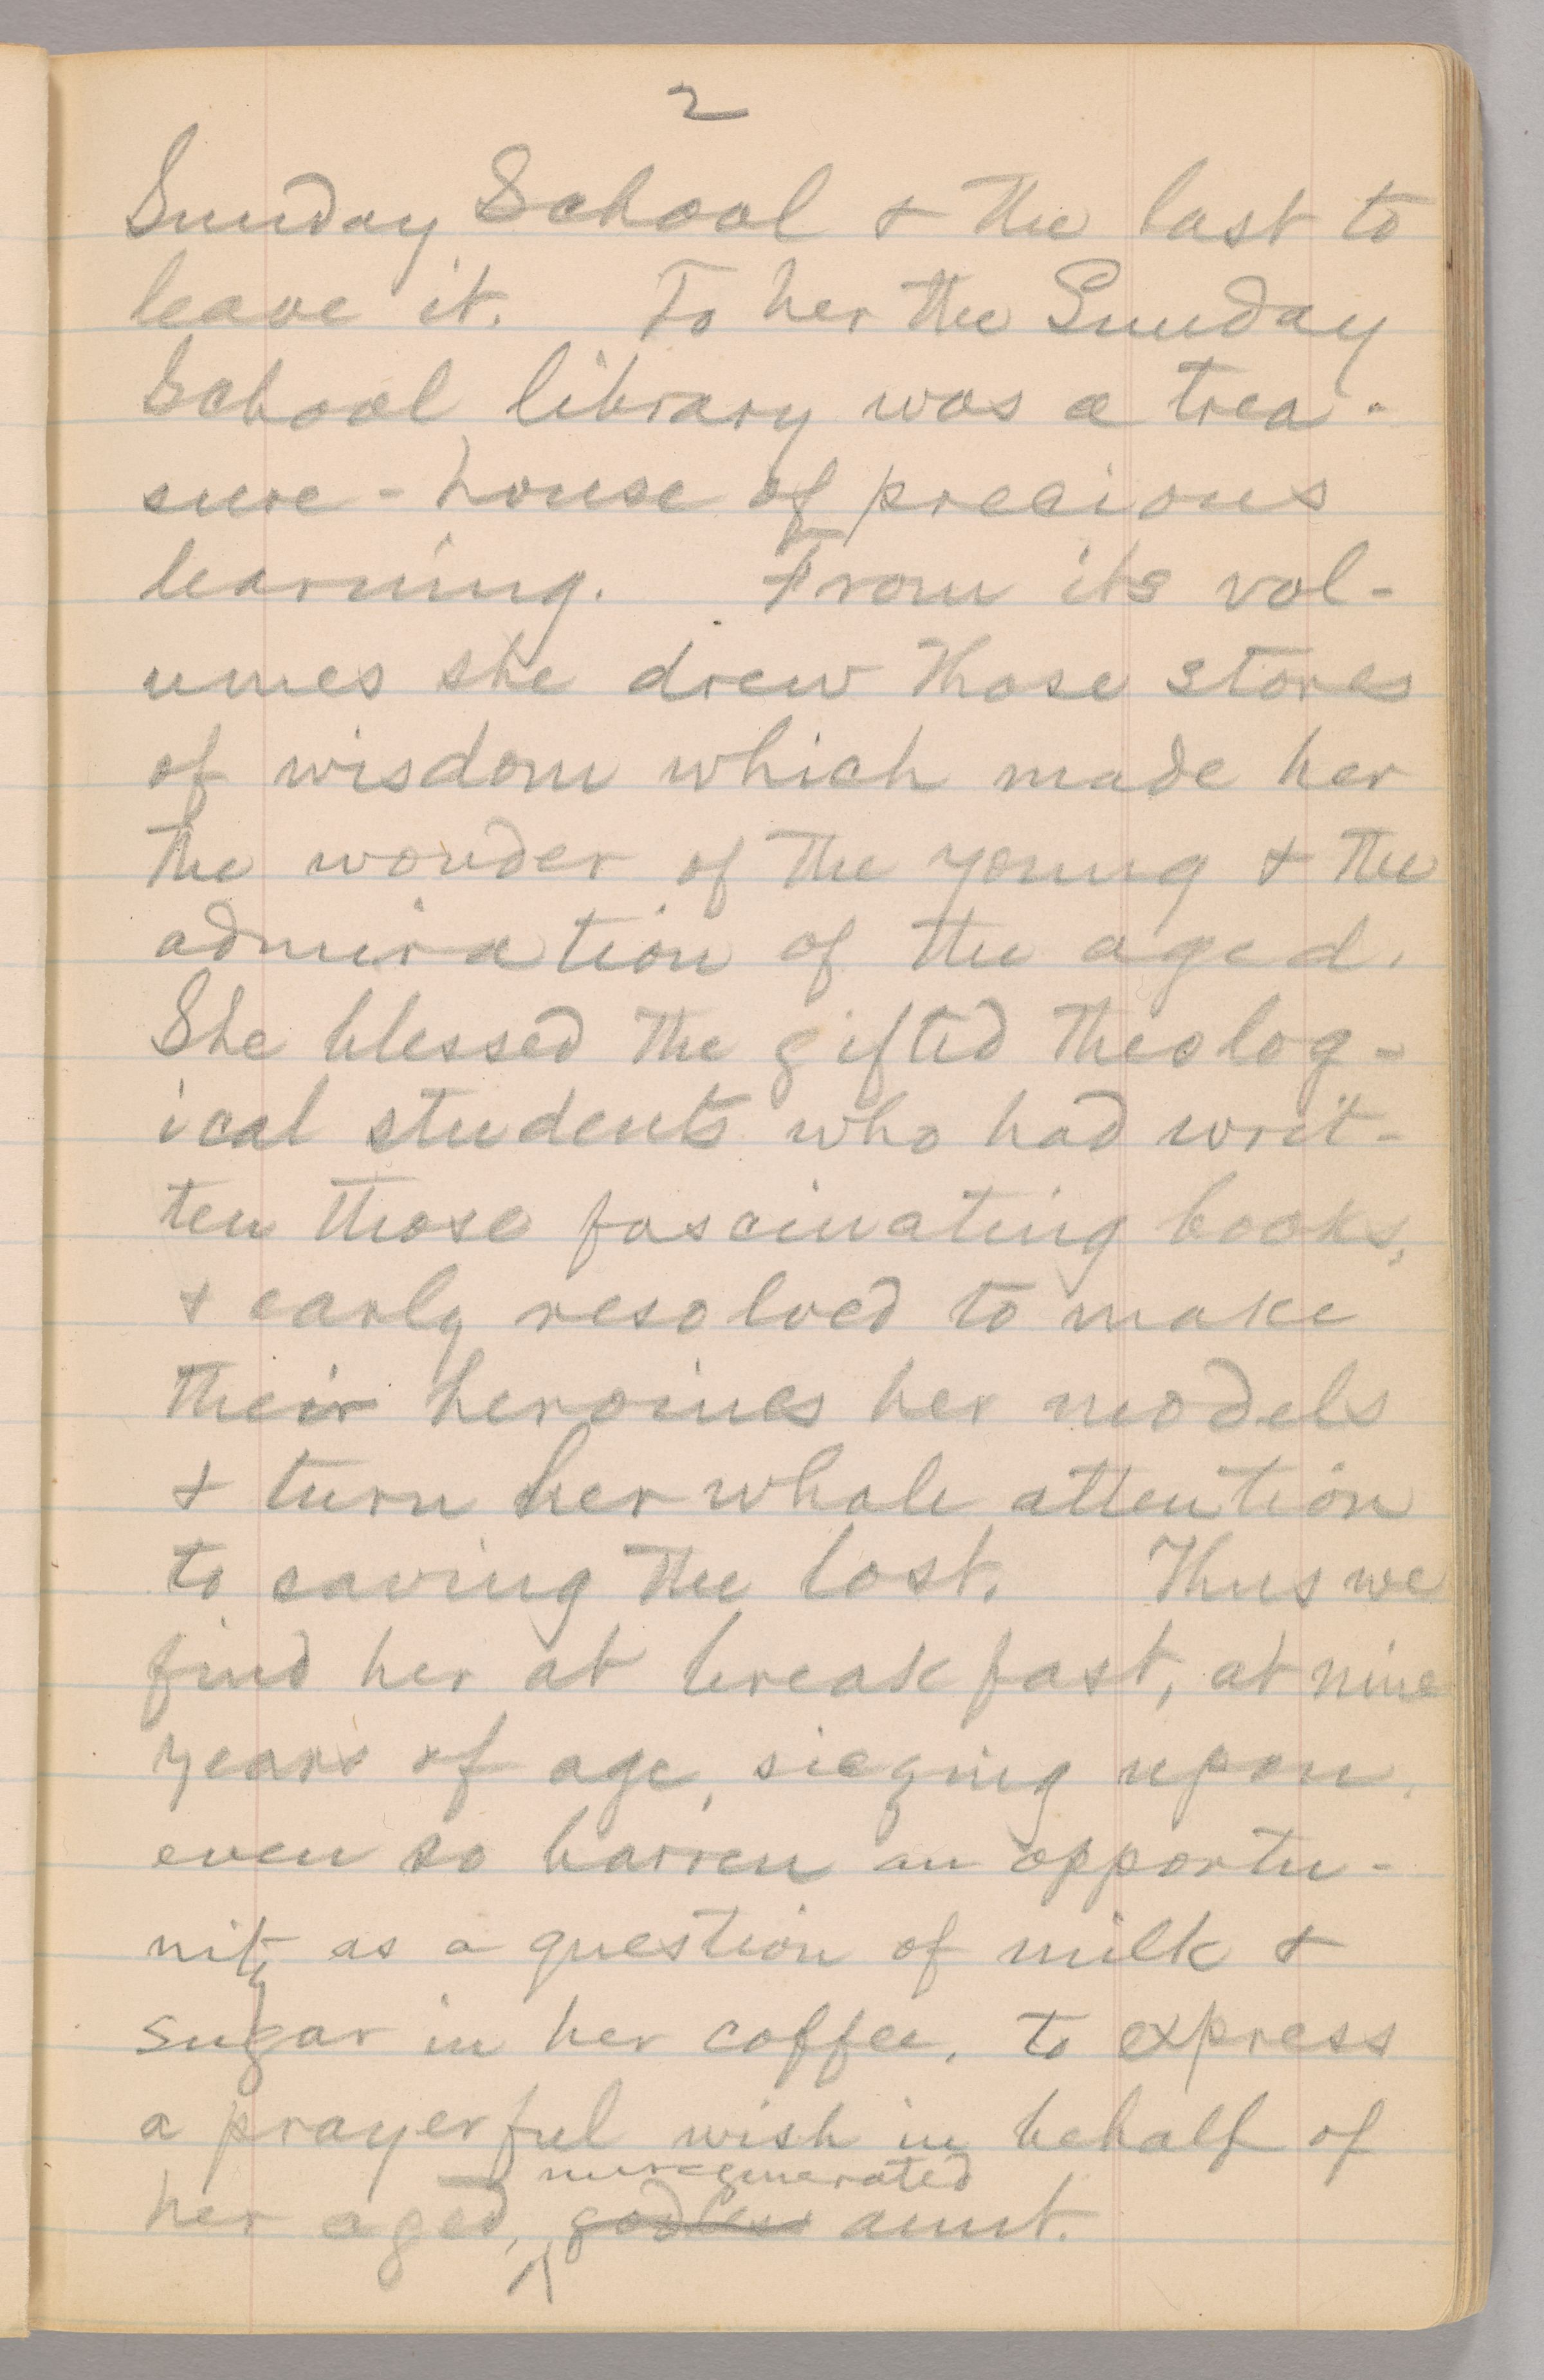 2
Sunday School & the last to
leave it. To her the Sunday
School library was a trea-
sure-house of precious
learning. From its vol-
umes she drew those stores
of wisdom which made her
the wonder of the young & the
admiration of the aged.
She blessed the gifted theolog-
ical students who had writ-
ten those fascinating books,
& early resolved to make
their heroines her models
& turn her whole attention
to saving the lost. Thus we
find her at breakfast, at nine
years of age, siezing upon
even so barren an opportu-
nity as a question of milk &
sugar in her coffee, to express
a prayerful wish in behalf of
unregenerated
her aged, godless aunt.